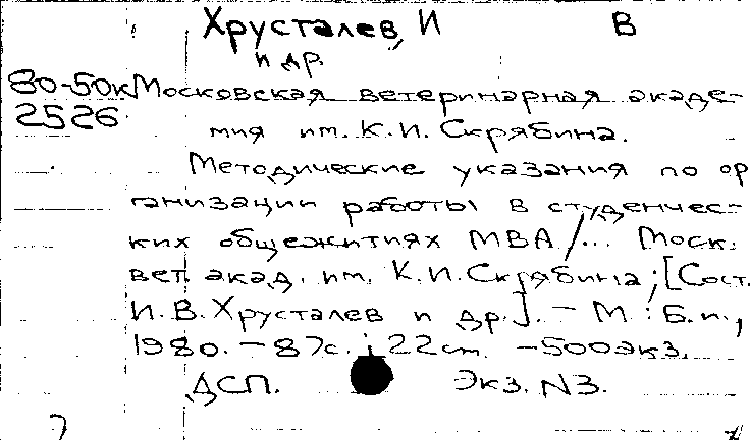 Хрусталев, И В
и др.
80-50к Московская ветеринарная акаде-
2526 мия им. К.И. Скрябина.
Методические указания по ор
ганизации работы в студенчес-
ких общежитиях МВА /... Моск.
вет. акад. им. К.И. Скрябина; [Сост.
И.В. Хрусталев и др.]. - М.: Б.и.,
1980. - 87с.; 22см. - 500экз.
ДСП. Экз. N3.